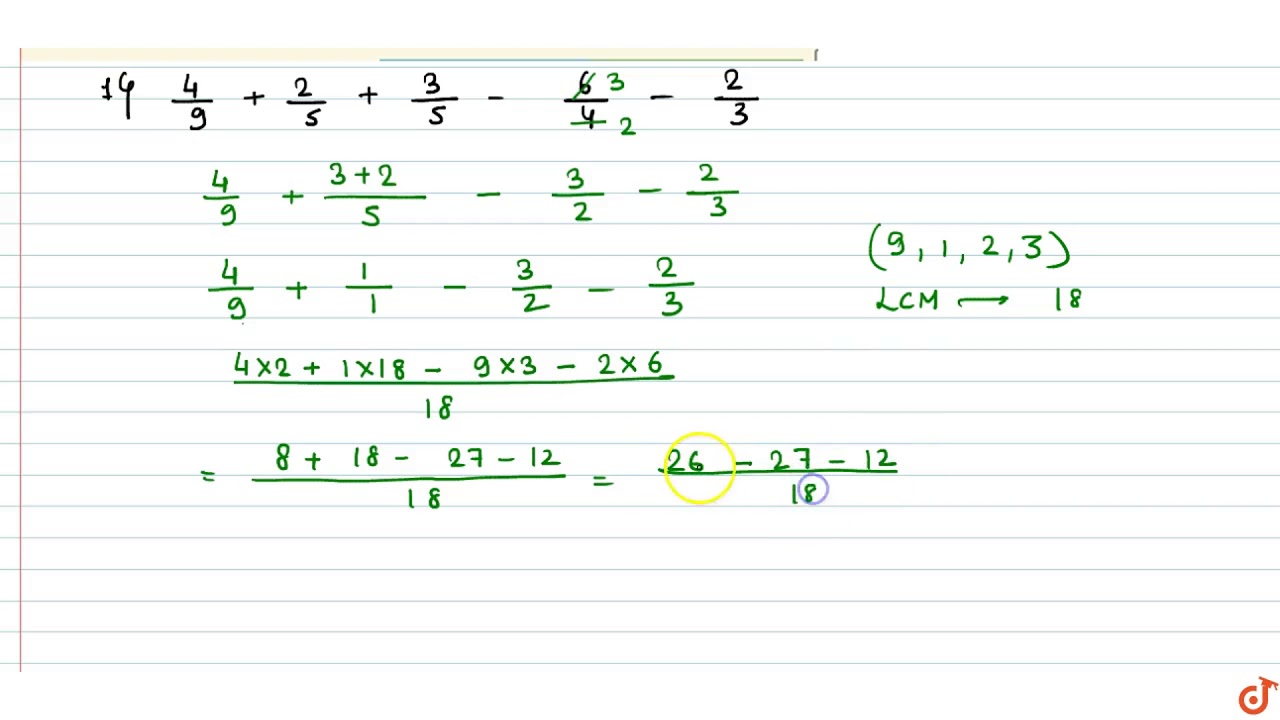 14 4/9 + 2/5 + 3/5 - 6/4 3/2 - 2/3
4/9 + 3+2/5 - 3/2 - 2/3
(9, 1, 2, 3)
4/9 + 1/1 - 3/2 - 2/3
LCM → 18
4×2 + 1×18 - 9×3 - 2×6
18
= 8 + 18 - 27 - 12 / 18 = 26 - 27 - 12 / 18